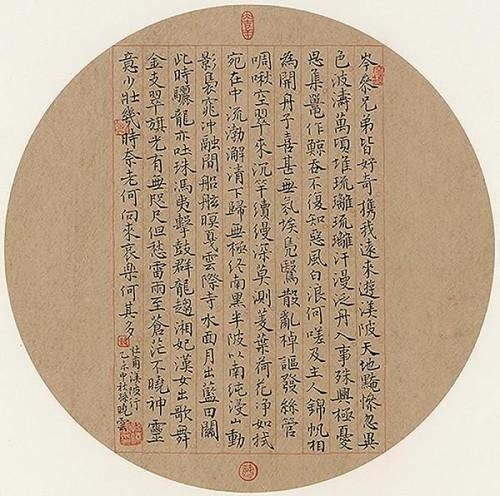 岑參兄弟皆好奇攜我遠来遊渼陂天地黤慘忽異
色波濤萬頃堆琉璃琉璃汗漫泛舟入事殊興極憂
思集鼉作鯨吞不復知惡風白浪何嗟及主人錦帆相
為開舟子喜甚無氛埃鳧鷖散亂棹謳發絲管
啁啾空翠來沉竿續縵深莫測菱葉荷花淨如拭
宛在中流渤澥清下歸無極終南黑半陂以南純浸山動
影裊窕沖融間船舷暝戛雲際寺水面月出藍田關
此時驪龍亦吐珠馮夷擊鼓群龍趨湘妃漢女出歌舞
金支翠旗光有無咫尺但愁雷雨至蒼茫不曉神靈
意少壯幾時奈老何向來哀樂何其多
杜甫渼陂行
乙未中秋孫曉雲